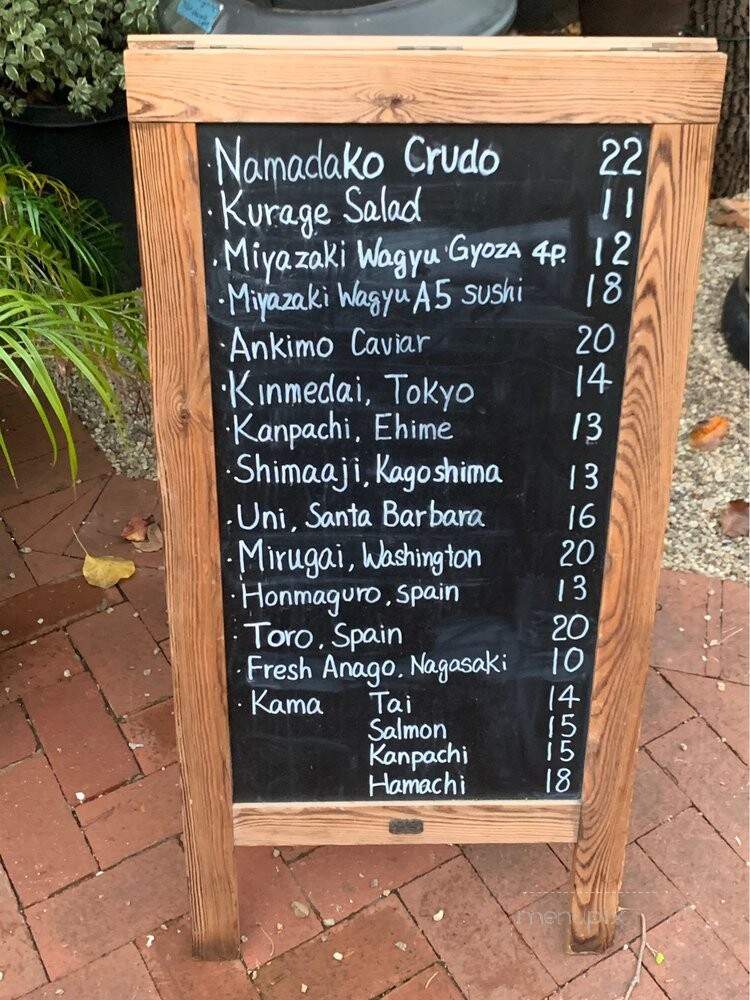 · Namadako Crudo 22
· Kurage Salad 11
· Miyazaki Wagyu Gyoza 4p. 12
· Miyazaki Wagyu A5 sushi 18
· Ankimo Caviar 20
· Kinmedai, Tokyo 14
· Kanpachi, Ehime 13
· Shimaaji, Kagoshima 13
· Uni, Santa Barbara 16
· Mirugai, Washington 20
· Honmaguro, spain 13
· Toro, Spain 20
· Fresh Anago, Nagasaki 10
· Kama Tai 14
Salmon 15
Kanpachi 15
Hamachi 18
menupix